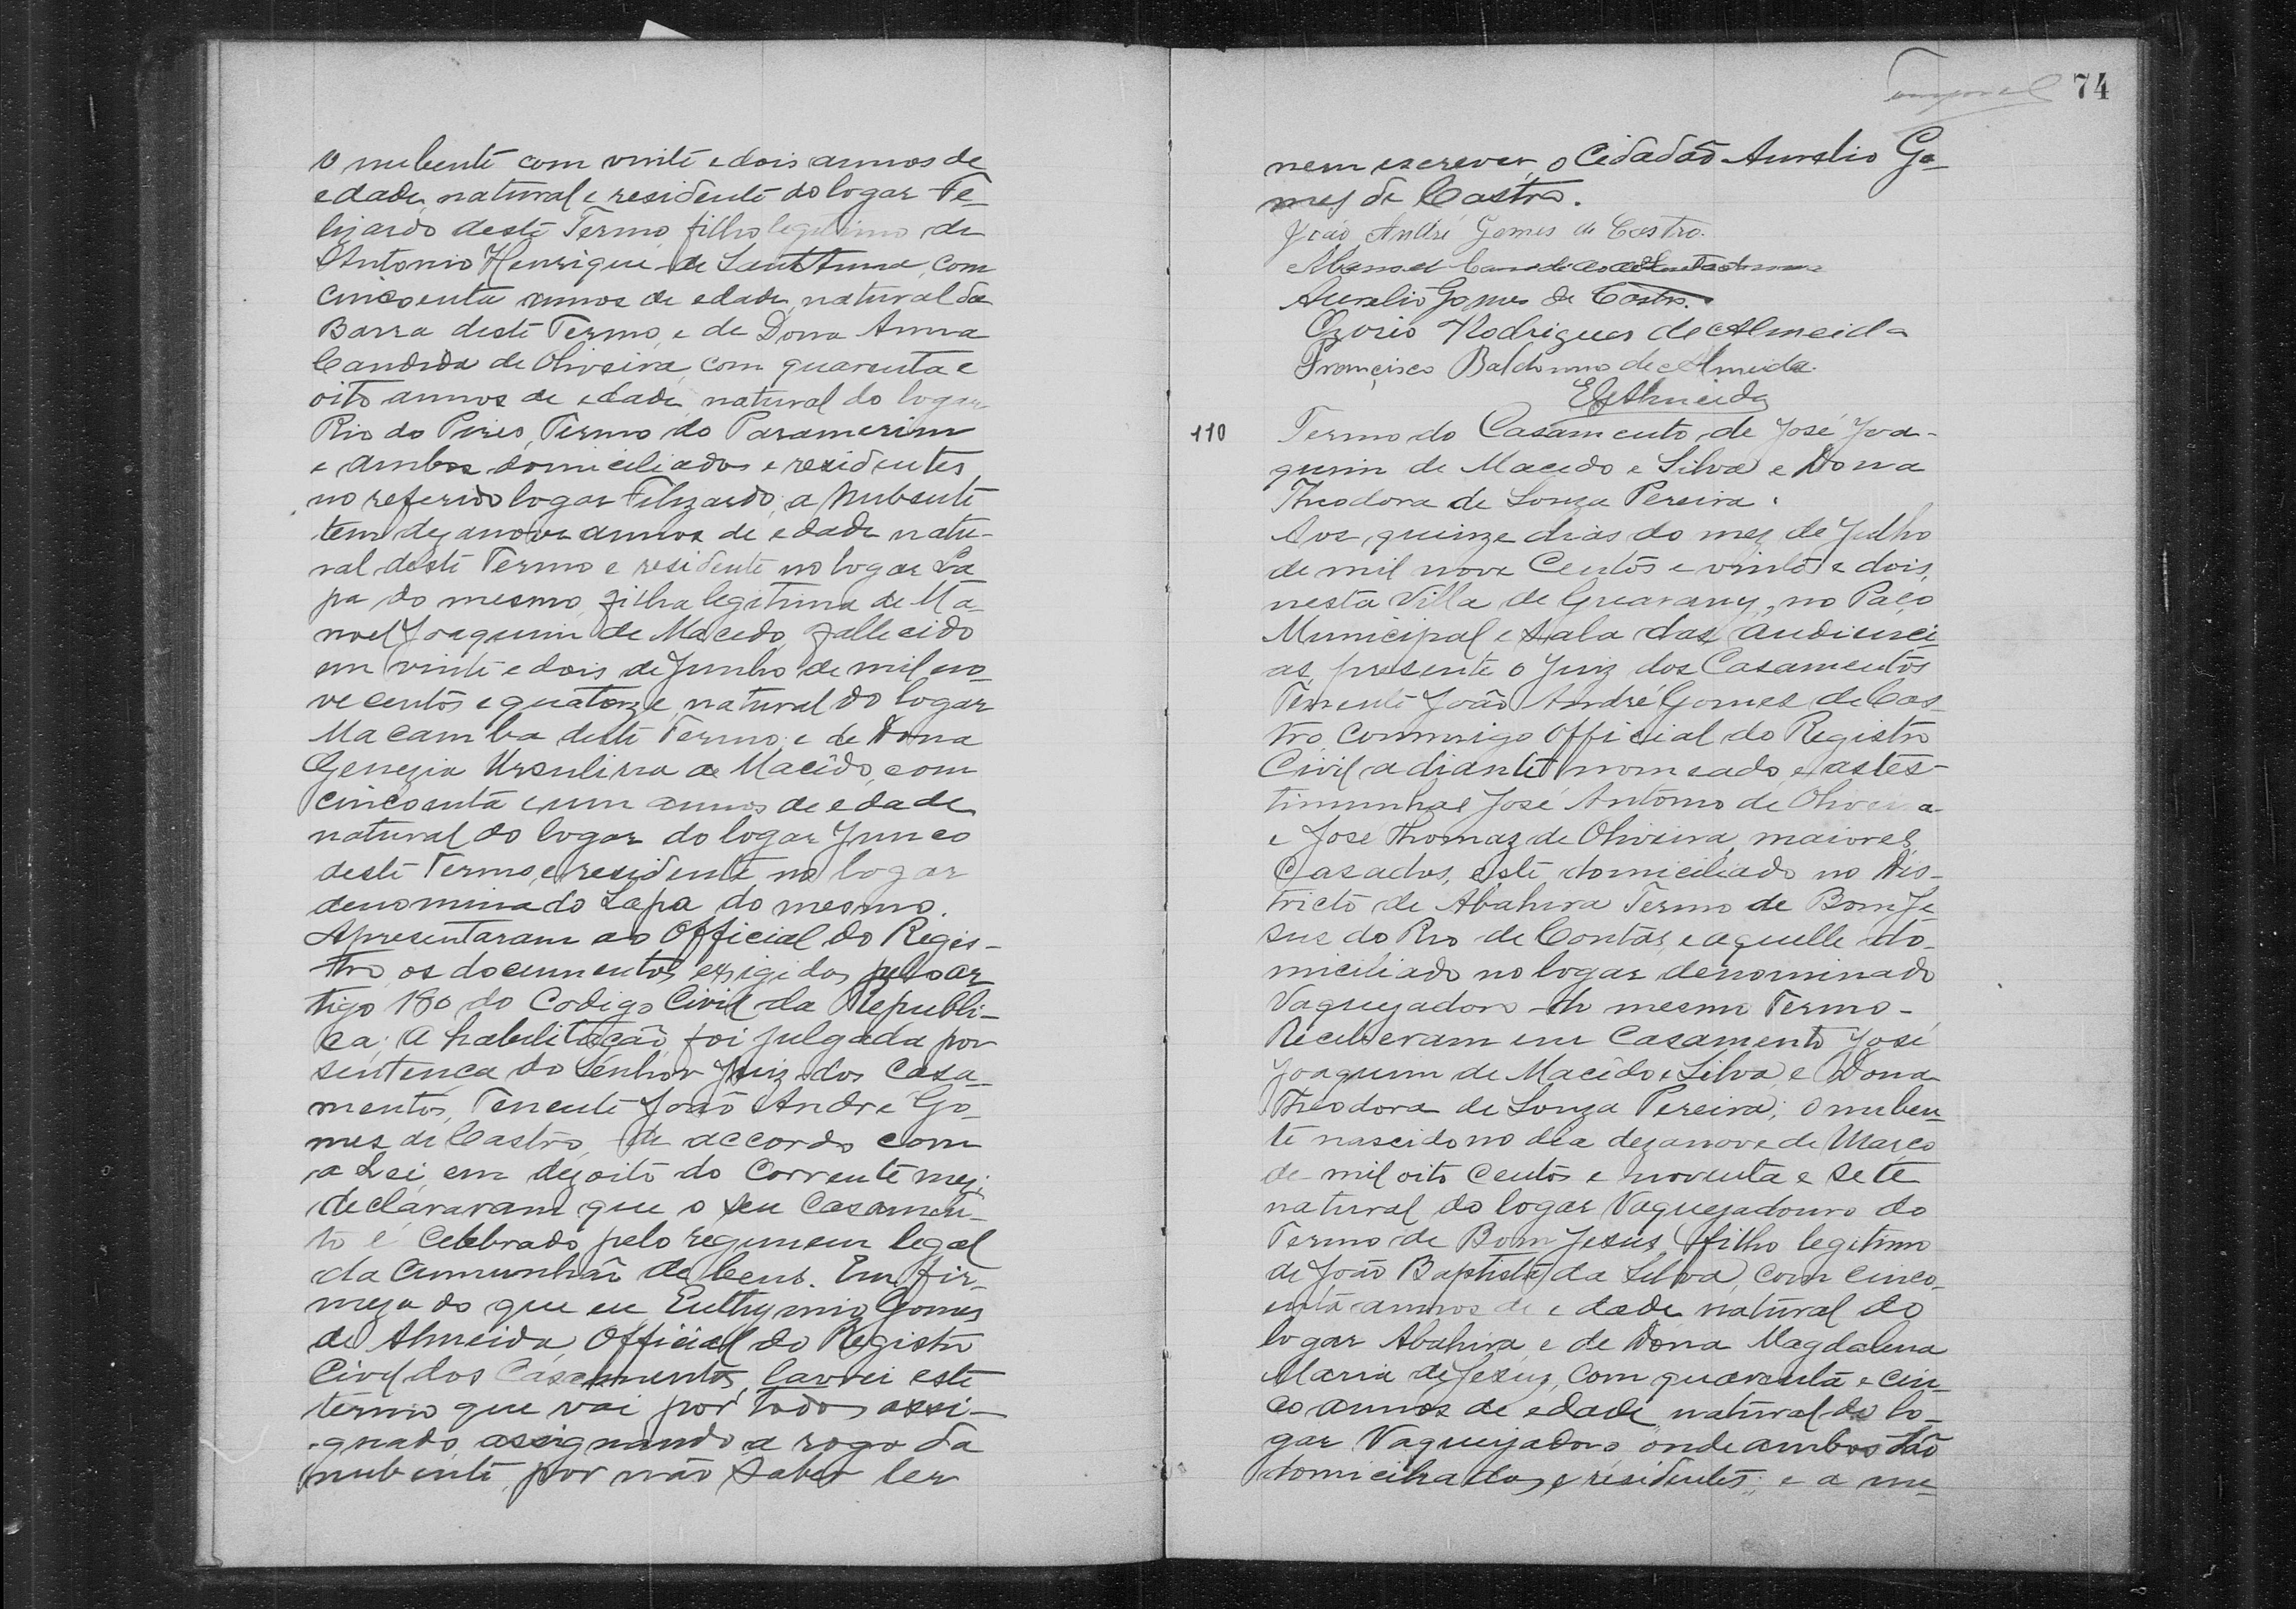 O nubente com vinte e dois annos de
edade, natural e residente do logar Fe-
lizardo deste Termo, filho legitimo de
Antonio Henrique de Sant'Anna, com
cincoenta annos de edade, natural da
Barra deste Termo, e de Dona Anna
Candida de Oliveira, com quarenta e
oito annos de edade, natural do logar
Rio do Pires, Termo do Paramerim
e ambos domiciliados e residentes
no referido logar Felizardo; a Nubente
tem dezanove annos de edade natu-
ral deste Termo e residente no logar La-
pa do mesmo, filha legitima de Ma-
noel Joaquim de Macedo, fallecido
em vinte e dois de Junho de mil no-
ve centos e quatorze, natural do logar
Macamba deste Termo; e de Dona
Genezia Ursulina de Macêdo, com
cincoenta e um annos de edade
natural do logar do logar Junco
deste Termo, e residente no logar
denominado Lapa do mesmo.
Apresentaram ao Official do Regis-
tro os documentos exigidos pelo ar
tigo 180 do Codigo Civil da Republi-
ca; A habilitação foi julgada por
sentença do Senhor Juiz dos Casa-
mentos, Tenente João Andre Go-
mes de Castro, de accordo com
a Lei, em dezoito do corrente mez;
declararam que o seu Casamen-
to é celebrado pelo regimem legal
da Cumunhão de bens. Em fir-
meza do que eu Euthymio Gomes
de Almeida, Official do Registro
Civil dos Casamentos, lavrei este
termo que vai por todos assi-
gnado, assignando a rogo da
nubente, por não saber ler
74
nem escrever, o Cidadão Aurelio Go-
mes de Castro.
João André Gomes de Castro.
Manoel
Aurelio Gomes de Castro.
Ozorio Rodrigues de Almeida
Francisco Baldoino de Almeida.
EGAlmeida
110 Termo do Casamento de José Joa-
quim de Macedo e Silva e Dona
Theodora de Souza Pereira.
Aos quinze dias do mez de Julho
de mil nove Centos e vinte e dois,
nesta Villa de Guarany, no Paço
Municipal e Sala das Audienci-
as, presente o Juiz dos Casamentos
Tenente João André Gomes de Cas-
tro, commigo Official do Registro
Civil adiante nomeado, e as tes-
timunhas José Antonio de Oliveira
e José Thomaz de Oliveira, maiores,
Casados, este domiciliado no Dis-
tricto de Abahira Termo de Bom Je-
sus do Rio de Contas, e aquelle do-
miciliado no logar denominado
Vaquejadoro do mesmo Termo-
Receberam em Casamento José
Joaquim de Macêdo e Silva, e Dona
Theodora de Souza Pereira; O nuben-
te nascido no dia dezanove de Março
de mil oito Centos e noventa e sete
natural do logar Vaquejadouro do
Termo de Bom Jesus, filho legitimo
de João Baptista da Silva, com cinco-
enta annos de edade, natural do
logar Abahira, e de Dona Magdalena
Maria de Jesus, com quarenta e cin-
co annos de edade natural do lo-
gar Vaqueijadoro onde ambos são
domiciliados, e residentes; e a nu-